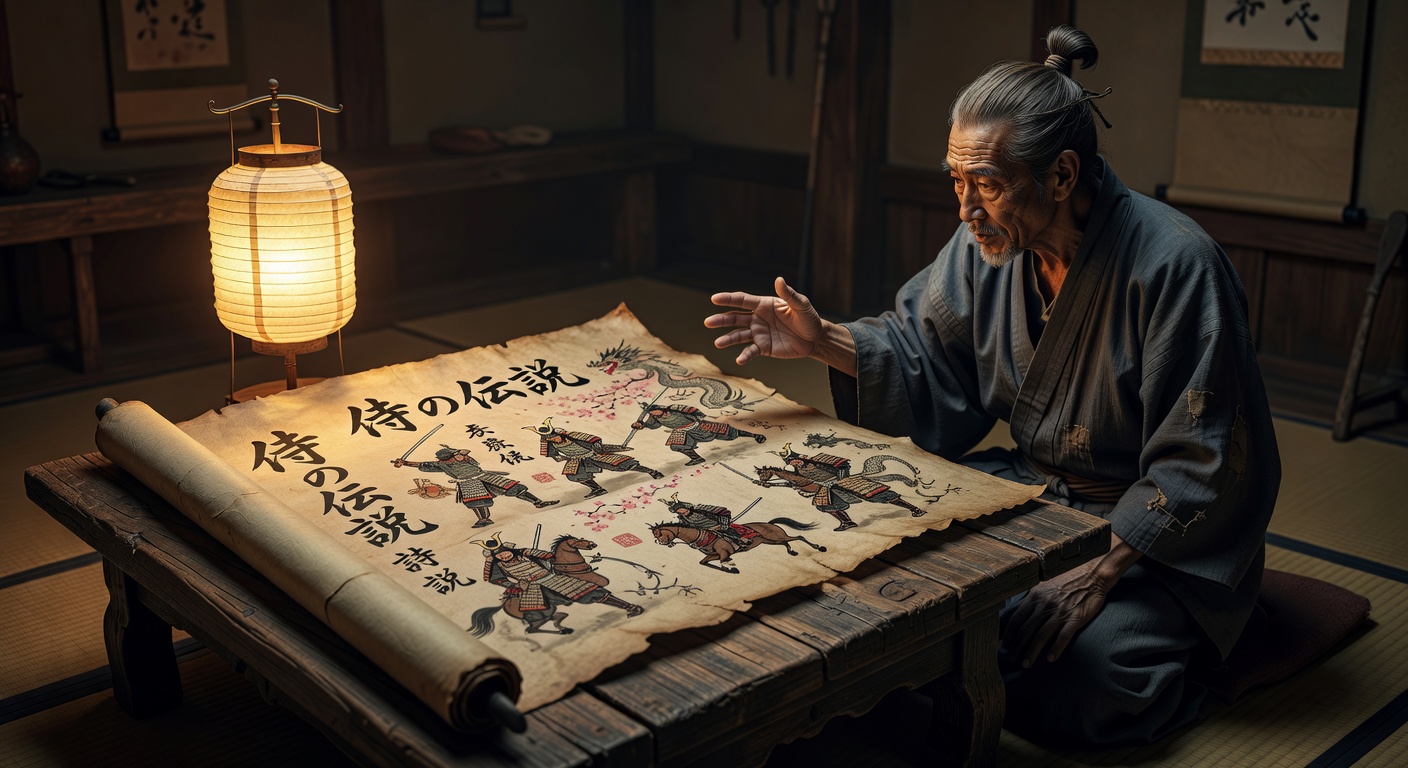 侍の伝説
侍の伝説
詩説